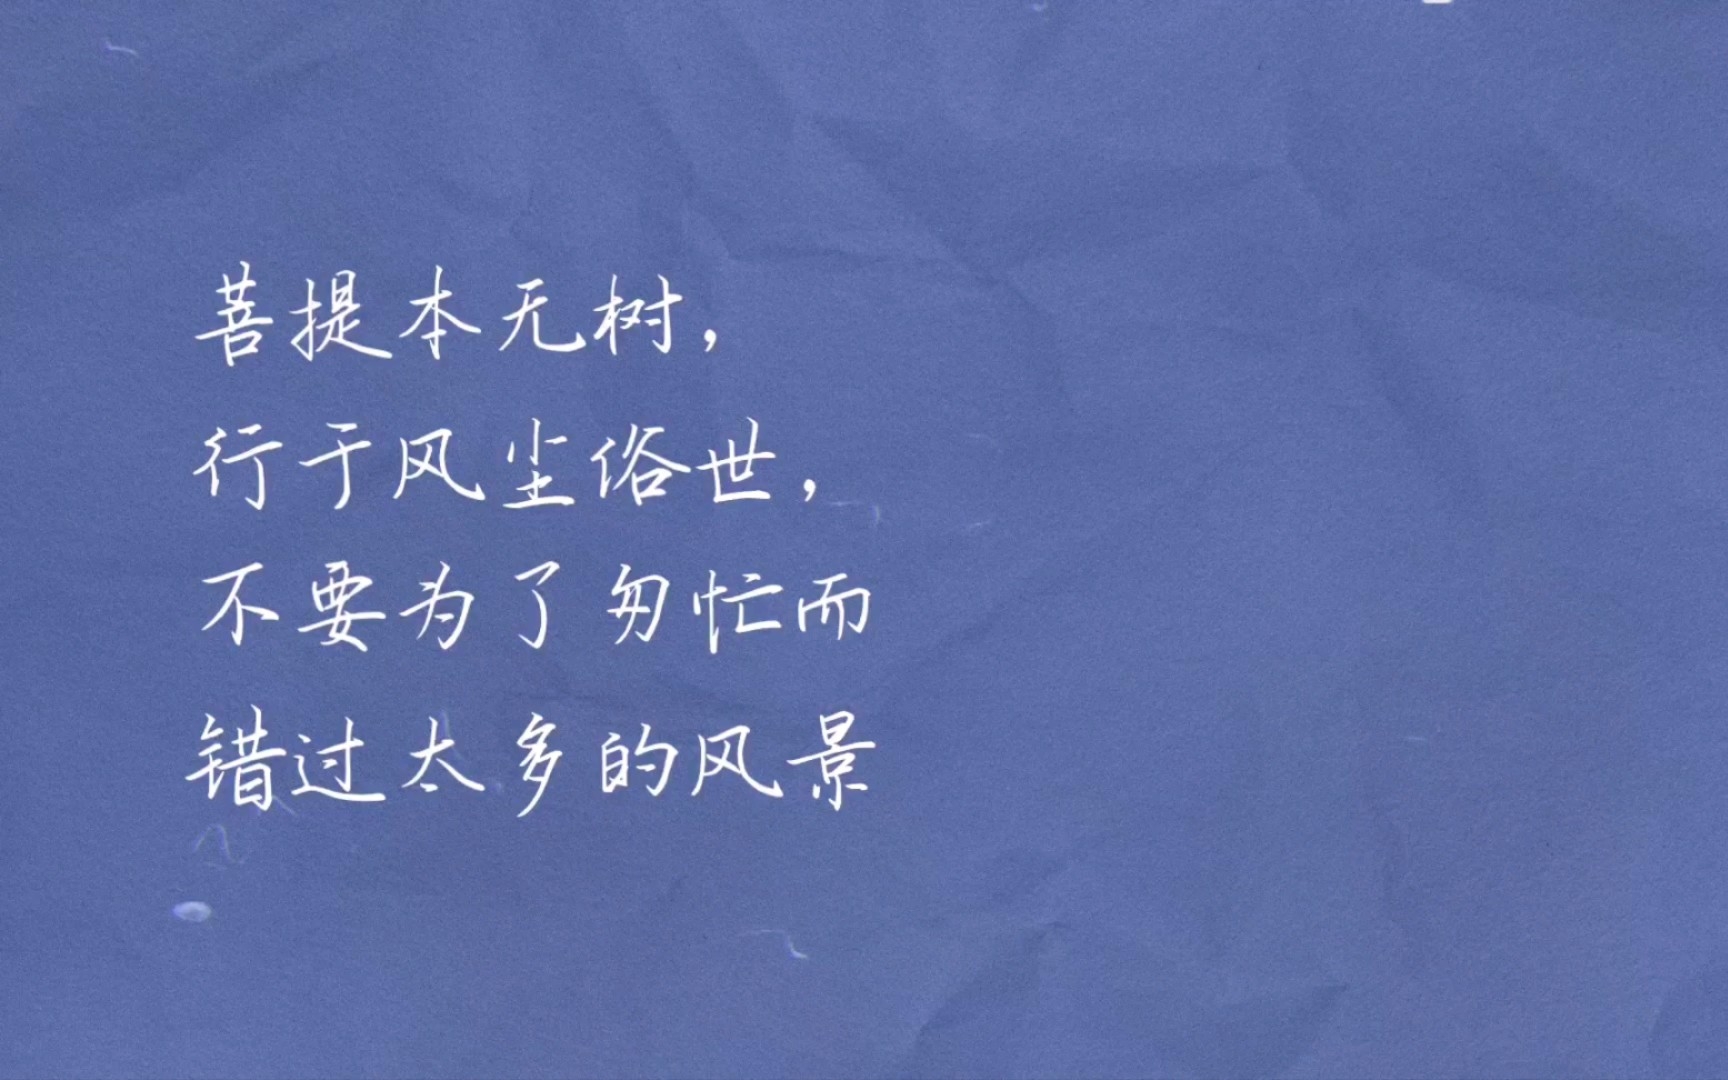 菩提本无树，
行于风尘俗世，
不要为了匆忙而
错过太多的风景